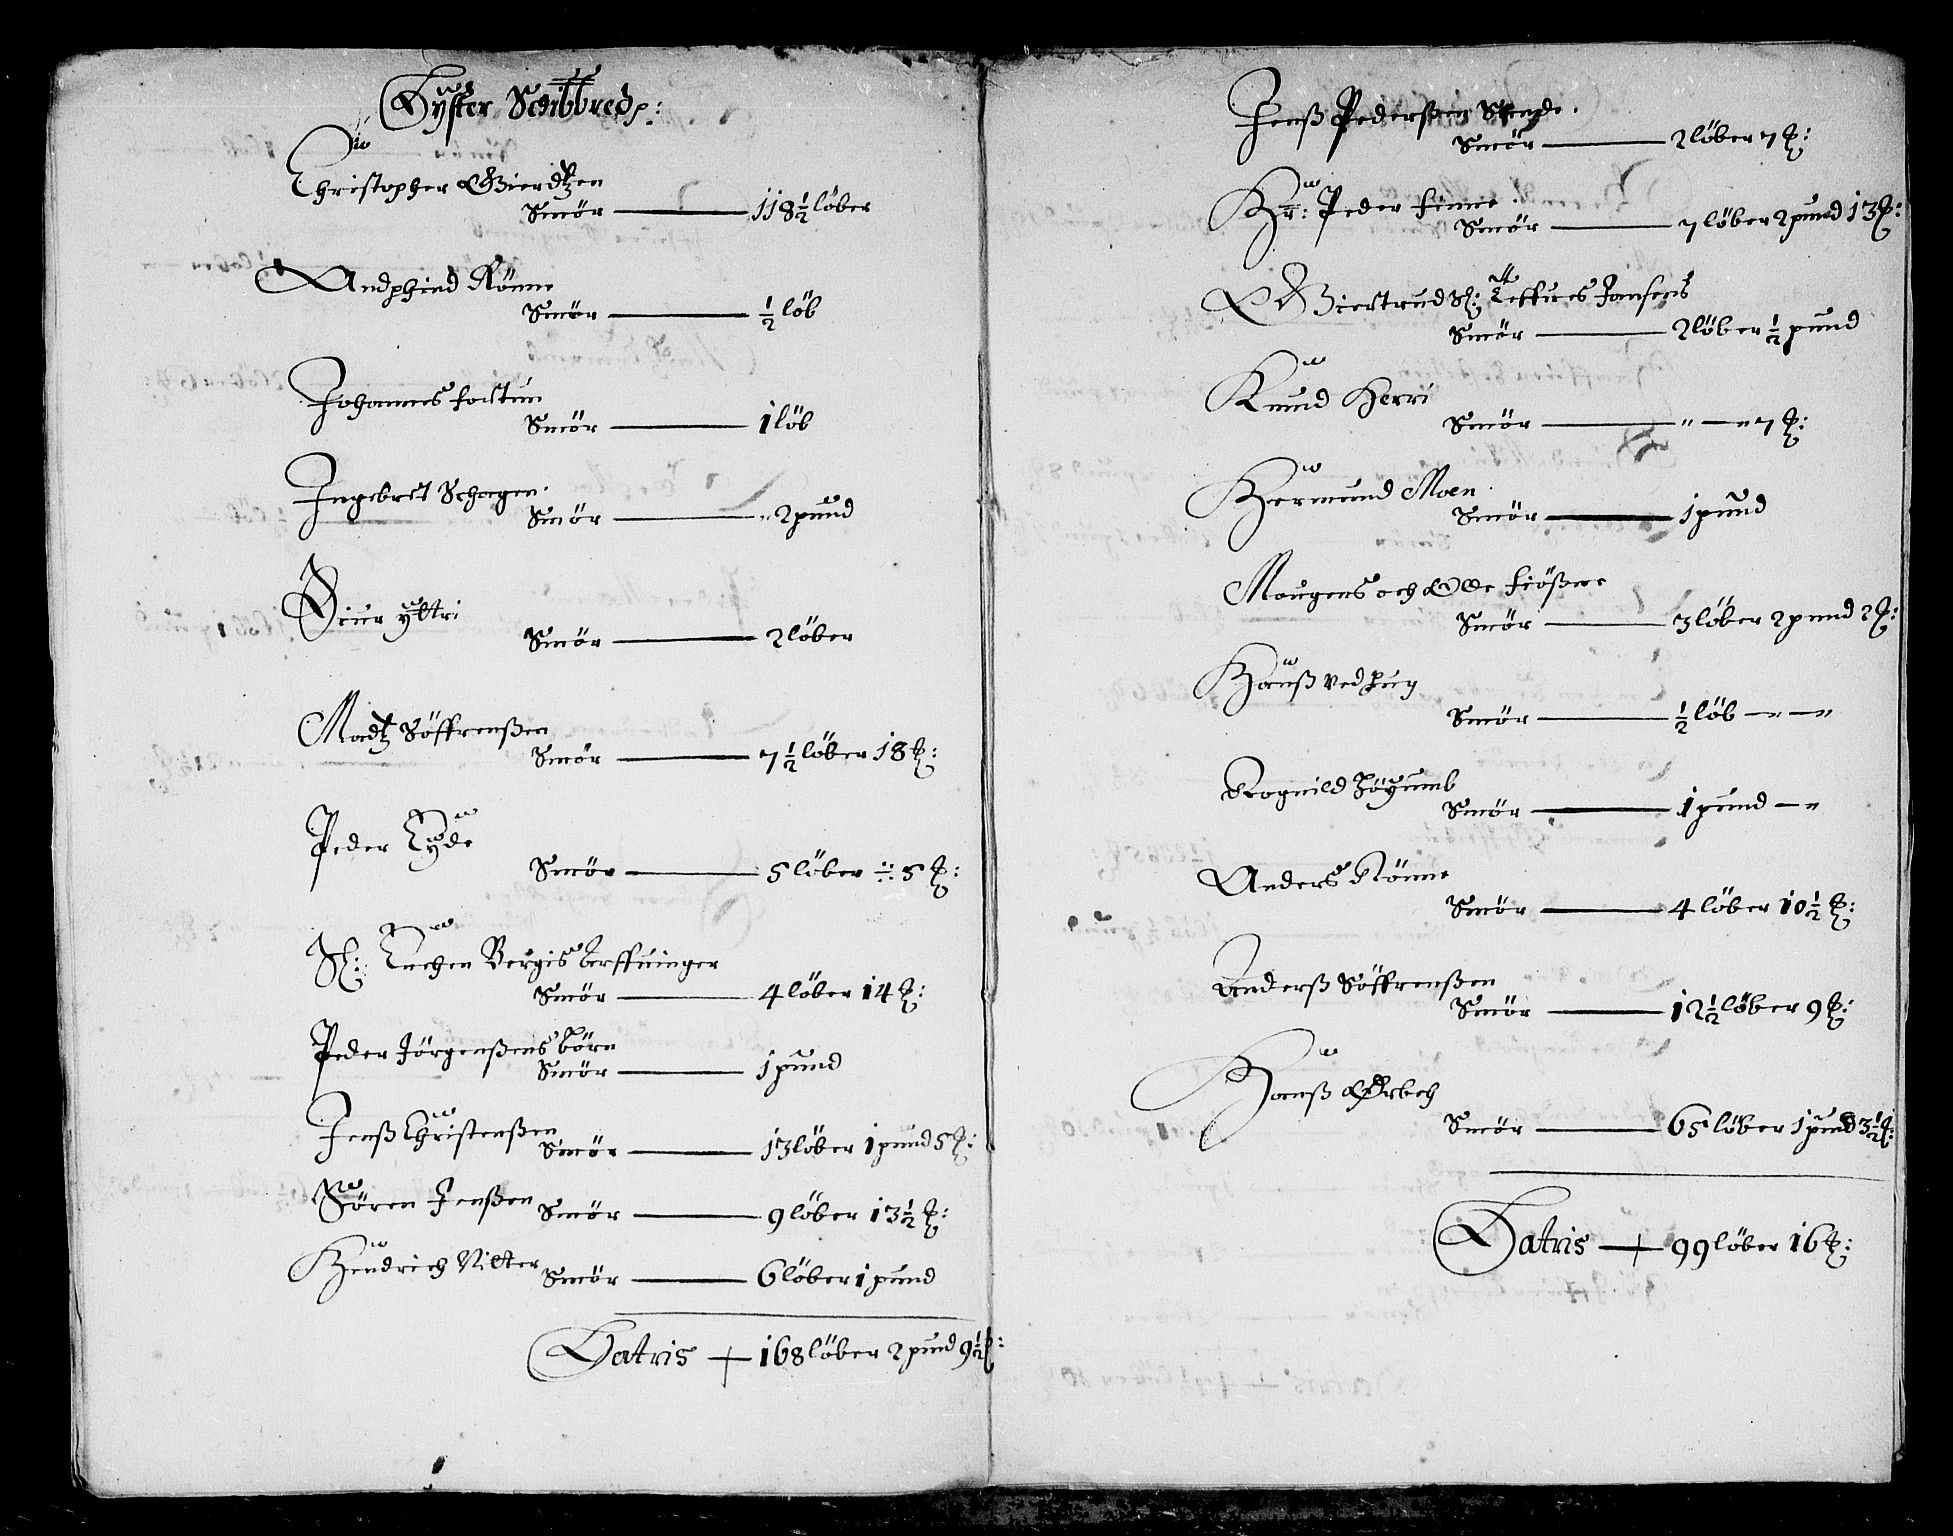 Lyster Schibbred:
Christopher Gierdtzen
Smör 118½ löber
Andphind Rönne
Smör ½ löb
Johannes fortun
Smör 1 löb
Ingebret Schagen.
Smör " 2 pund
Siur yttri
Smör 2 löber
Madtz Söffrenßen
Smör 7½ löber 18 ℔:
Peder Lyde
Smör 5 löber ÷ 5 ℔:
Sl: Bergis Arffuinger
Smör 4 löber 14 ℔:
Peder Jörgenßens börn
Smör 1 pund
Jenß Christenßen
Smör 13 löber 1 pund 5 ℔:
Sören Jenßen
Smör 9 löber 13½ ℔:
Hendrich Nitter
Smör 6 löber 1 pund
Latris 168 löber 2 pund 9½ ℔:
Jenß Pederßen
Smör 2 löber 7 ℔:
Hr: Peder finne.
Smör 7 löber 2 pund 13 ℔:
Giertrud Sl: Jensens
Smör 2 löber ½ pund
Knud Kerri
Smör " — " 7 ℔:
Hermund Moen.
Smör 1 pund
Mougens och Olle fiößne
Smör 3 löber 2 pund 2 ℔:
Hanß ved
Smör ½ löb — " — "
Rognild Höyumb
Smör 1 pund — "
Anders Rönne
Smör 4 löber 10½ ℔:
Anderß Söffrenßen
Smör 12½ löber 9 ℔:
Hanß Orbech
Smör 65 löber 1 pund 3½ ℔:
Latris 99 löber 16 ℔: